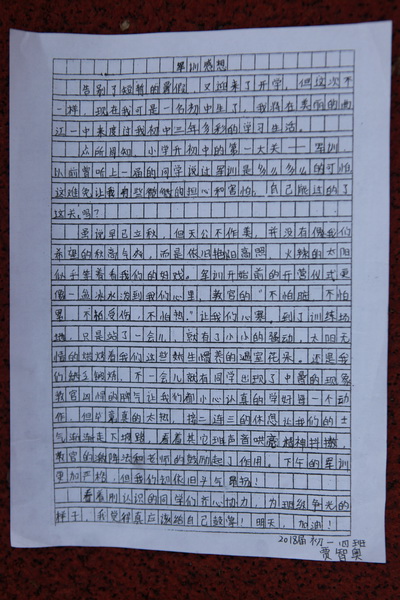 军训感想
告别了短暂的暑假，又迎来了开学，但这次不
一样，现在我可是一名初中生了，我将在美丽的曲
江一中来度过我初中三年多彩的学习生活。
众所周知，小学升初中的第一大关——军训
以前曾听上一届的同学说过军训是多么多么的可怕
这难免让我有些的担心和害怕。自己能过的了
这关吗？
虽说早已立秋，但天公不作美，并没有像我们
希望的秋高气爽，而是依旧艳阳高照。火辣的太阳
似乎等着看我们的好戏。军训开始前的开营仪式更
像一盆冰水泼到我们心里，教官的“不怕脏，不怕
累，不怕受伤，不怕热”让我们心寒。到了训练场
地，只是站了一会儿，就有了小小的骚动，太阳无
情的烘烤着我们这些娇生惯养的温室花朵。还是我
们缺乏锻炼，不一会儿就有同学出现了中暑的现象
教官凶悍的脾气让我们都小心认真的学好每一个动
作，但毕竟真的太热，接二连三的休息让我们的士
气渐渐走下坡路，看着其它班声音哄亮精神抖擞
教官的和老师的鼓励起了作用。下午的军训
更加严格，但我们却依旧士气昂扬！
看着刚认识的同学们齐心协力，为班级争光的
样子，我觉得真应该给自己鼓掌！明天，加油！
2018届初一四班
贾智奥